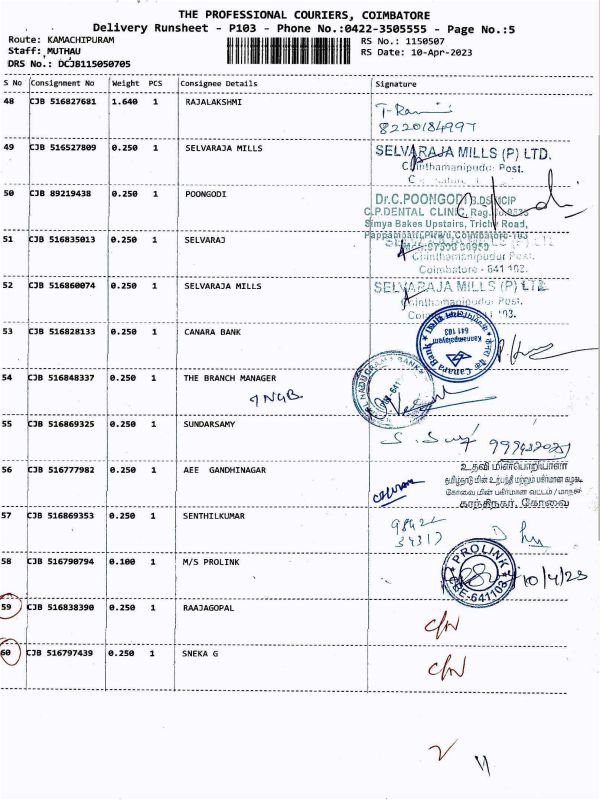 THE PROFESSIONAL COURIERS, COIMBATORE
Delivery Runsheet - P103 - Phone No.:0422-3505555 - Page No.:5
Route: KAMACHIPURAM
Staff: MUTHAU
DRS No.: DCJB115050705
RS No.: 1150507
RS Date: 10-Apr-2023
S No Consignment No Weight PCS Consignee Details Signature
48 CJB 516827681 1.640 1 RAJALAKSHMI
8220184997
49 CJB 516527809 0.250 1 SELVARAJA MILLS
SELVARAJA MILLS (P) LTD.
Chinthamanipudur Post.
50 CJB 89219438 0.250 1 POONGODI
Dr.C.POONGODI B.DS
C.P.DENTAL CLINIC, Reg.
Simya Bakes Upstairs, Trichy Road,
51 CJB 516835013 0.250 1 SELVARAJ
Chinthamanipudur Post.
Coimbatore - 641 103.
52 CJB 516860074 0.250 1 SELVARAJA MILLS
SELVARAJA MILLS (P) LTD.
Chinthamanipudur Post.
103.
53 CJB 516828133 0.250 1 CANARA BANK
Canara Bank
Kannampalayam
641 103
54 CJB 516848337 0.250 1 THE BRANCH MANAGER
TNGB
NADU GRAMA BANK
55 CJB 516869325 0.250 1 SUNDARSAMY
56 CJB 516777982 0.250 1 AEE GANDHINAGAR
உதவி மின்பொறியாளர்
காந்திநகர், கோவை
57 CJB 516869353 0.250 1 SENTHILKUMAR
98422
34317
58 CJB 516790794 0.100 1 M/S PROLINK
PROLINK
CBE-641103
10/4/23
59 CJB 516838390 0.250 1 RAAJAGOPAL
60 CJB 516797439 0.250 1 SNEKA G